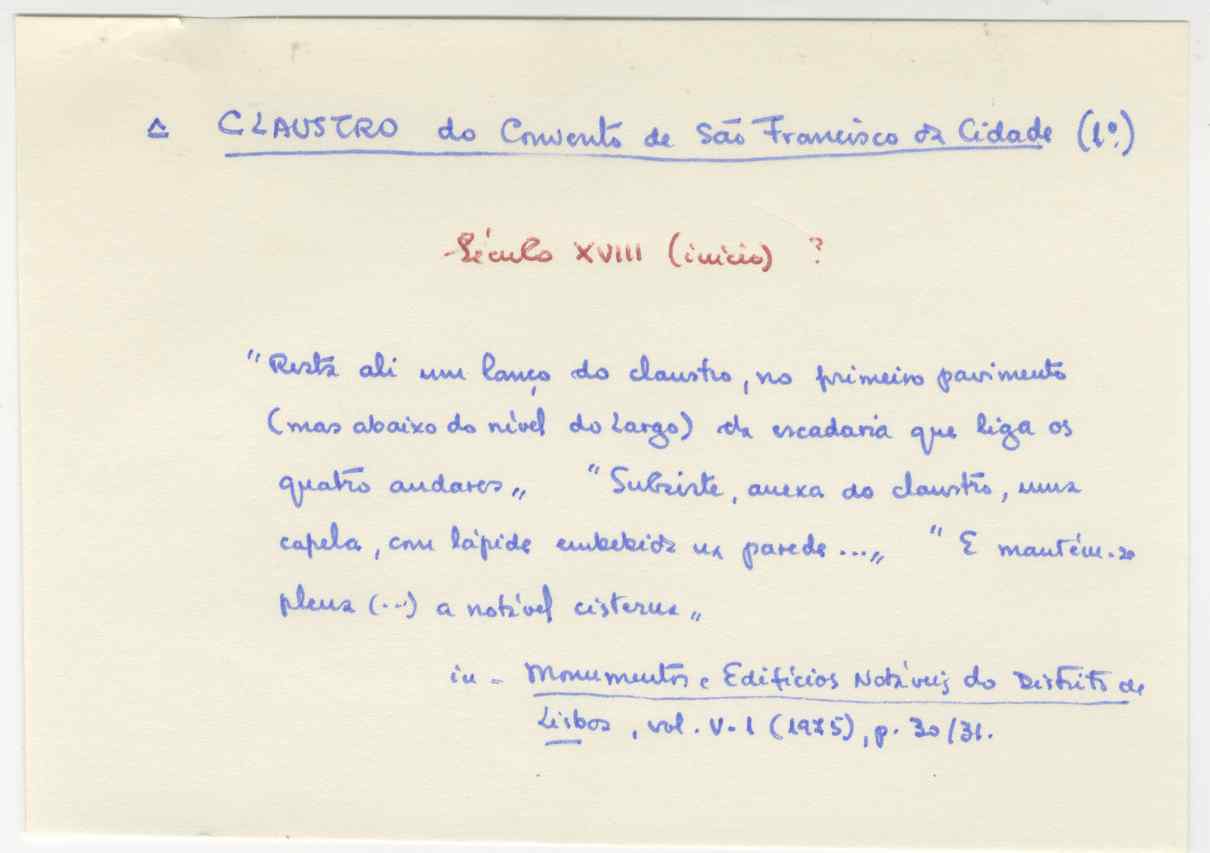 △ CLAUSTRO do Convento de São Francisco da Cidade (1º.)
Século XVIII (início) ?
"Resta ali um lanço do claustro, no primeiro pavimento
(mas abaixo do nível do Largo) da escadaria que liga os
quatro andares„ "Subsiste, anexa ao claustro, uma
capela, com lápide embebida na parede ...„ "E mantém-se
plena (...) a notável cisterna„
in - Monumentos e Edifícios Notáveis do Distrito de
Lisboa, vol. V-1 (1975), p. 30/31.